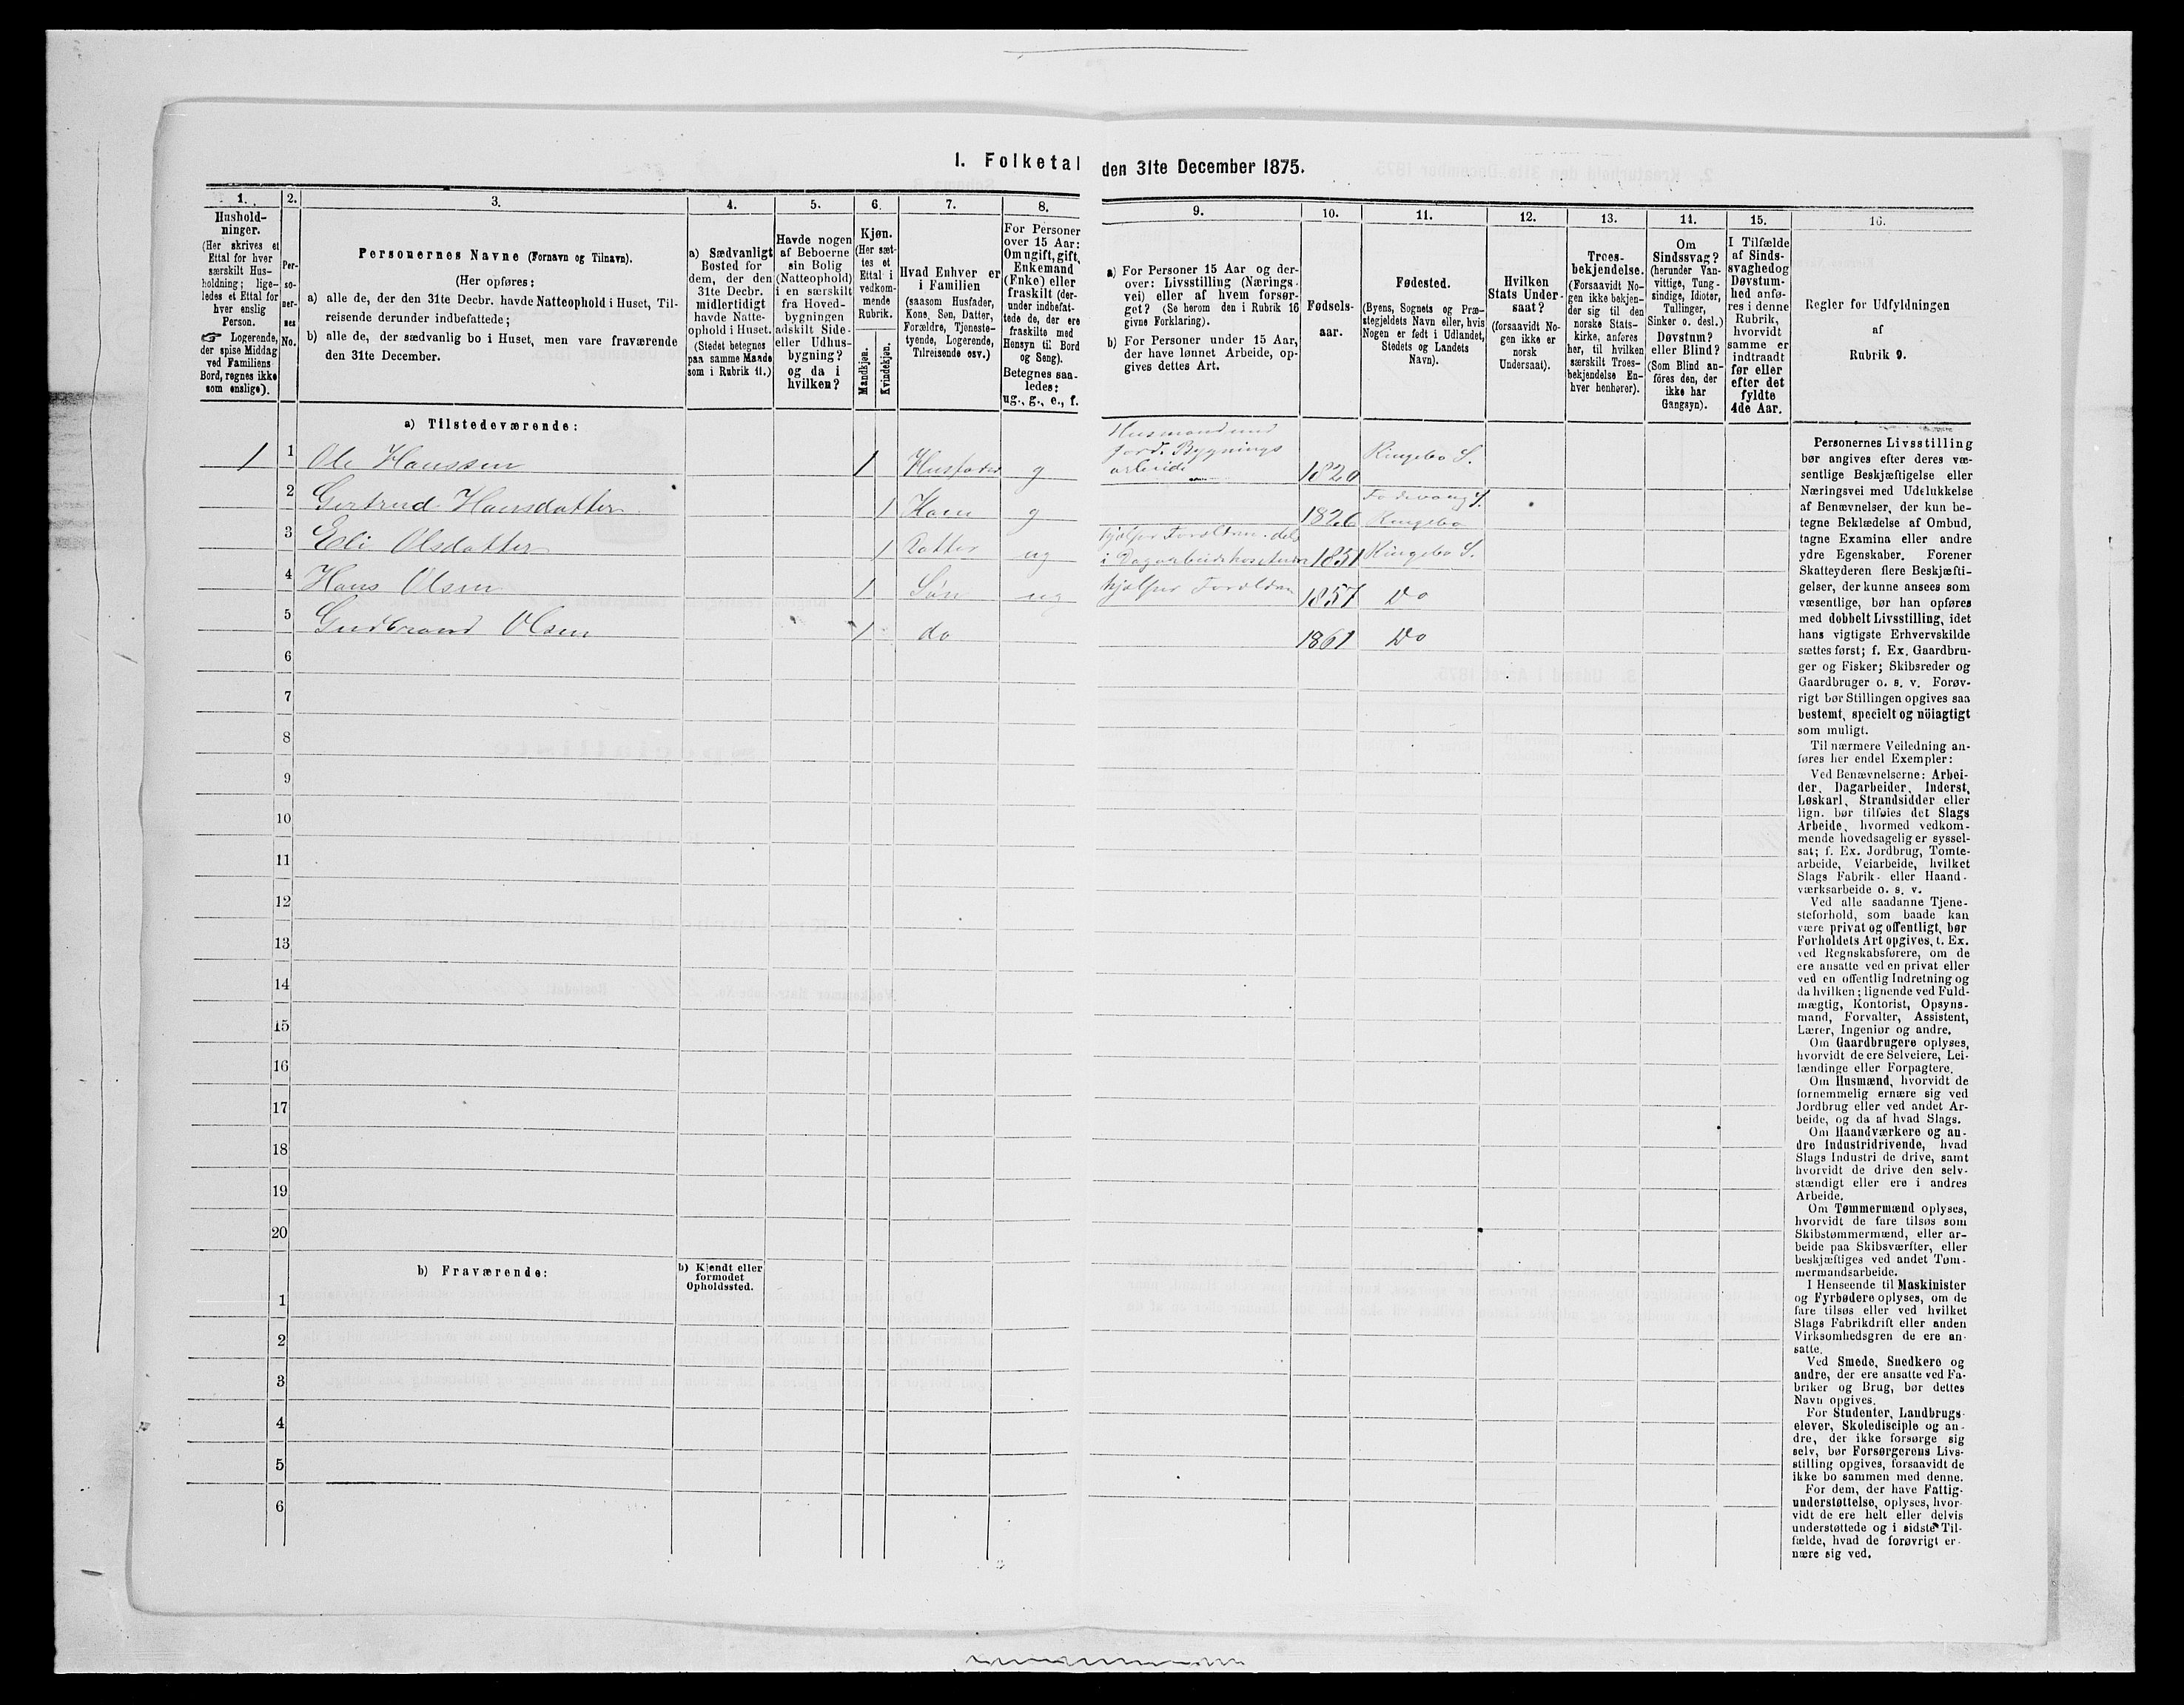 1. Folketal den 31te December 1875.
1.
Hushold-
ninger.
(Her skrives et
Ettal for hver
særskilt Hus-
holdning; lige-
ledes et Ettal for
hver enslig
Person.
☞ Logerende,
der spise Middag
ved Familiens
Bord, regnes ikke
som enslige).
2.
Per-
so-
ner-
nes
No.
3.
Personernes Navne (Fornavn og Tilnavn).
(Her opføres:
a) alle de, der den 31te Decbr. havde Natteophold i Huset, Til-
reisende derunder indbefattede;
b) alle de, der sædvanlig bo i Huset, men vare fraværende
den 31te December.
4.
a) Sædvanligt
Bosted for
dem, der den
31te Decbr.
midlertidigt
havde Natte-
ophold i Huset.
(Stedet betegnes
paa samme Maade
som i Rubrik 11.)
5.
Havde nogen
af Beboerne
sin Bolig
(Natteophold)
i en særskilt
fra Hoved-
bygningen
adskilt Side-
eller Udhus-
bygning?
og da i
hvilken?
6.
Kjøn.
(Her sæt-
tes et
Ettal i
vedkom-
mende
Rubrik.
Mandkjøn.
Kvindekjøn.
7.
Hvad Enhver er
i Familien
(saasom Husfader,
Kone, Søn, Datter,
Forældre, Tjeneste-
tyende, Logerende,
Tilreisende osv.)
8.
For Personer
over 15 Aar:
Om ugift, gift,
Enkemand
(Enke) eller
fraskilt (der-
under indbefat-
tede de, der ere
fraskilte med
Hensyn til Bord
og Seng).
Betegnes saa-
ledes:
ug., g., e., f.
9.
a) For Personer 15 Aar og der-
over: Livsstilling (Nærings-
vei) eller af hvem forsør-
get? (Se herom den i Rubrik 16
givne Forklaring).
b) For Personer under 15 Aar,
der have lønnet Arbeide, op-
gives dettes Art.
10.
Fødsels-
aar.
11.
Fødested.
(Byens, Sognets og Præ-
stegjeldets Navn eller, hvis
Nogen er født i Udlandet,
Stedets og Landets
Navn).
12.
Hvilken
Stats Under-
saat?
(forsaavidt No-
gen ikke er
norsk
Undersaat).
13.
Troes-
bekjendelse.
(Forsaavidt No-
gen ikke bekjen-
der sig til den
norske Stats-
kirke, anføres
her, til hvilken
særskilt Troes-
bekjendelse En-
hver henhører).
14.
Om
Sindssvag?
(herunder Van-
vittige, Tung-
sindige, Idioter,
Tullinger,
Sinker o. desl.)
Døvstum?
eller Blind?
(Som Blind an-
föres den, der
ikke har
Gangsyn).
15.
I Tilfælde
af Sinds-
svaghed og
Døvstum-
hed anfø-
res i denne
Rubrik,
hvorvidt
samme er
indtraadt
før eller
efter det
fyldte
4de Aar.
16.
Regler for Udfyldningen
af
Rubrik 9.
a) Tilstedeværende:
1 1 Ole Hanssen 1 Husfader g Husmand med jord. Bygnings arbeide 1820 Ringebo S.
2 Gertrud Hansdatter 1 Kone g 1826 Ringebo
3 Eli Olsdatter 1 Datter ug hjælper Foreldren. dels i Dagarbeide 1851 Ringebo S.
4 Hans Olsen 1 Søn ug hjælper Foreldren 1857 Do
5 Gudbrand Olsen 1 do 1861 Do
6
7
8
9
10
11
12
13
14
15
16
17
18
19
20
b) Fraværende:
b) Kjendt eller
formodet
Opholdssted.
1
2
3
4
5
6
Personernes Livsstilling
bør angives efter deres væ-
sentlige Beskjæftigelse eller
Næringsvei med Udelukkelse
af Benævnelser, der kun be-
tegne Beklædelse af Ombud,
tagne Examina eller andre
ydre Egenskaber. Forener
Skatteyderen flere Beskjæfti-
gelser, der kunne ansees som
væsentlige, bør han opføres
med dobbelt Livsstilling, idet
hans vigtigste Erhvervskilde
sættes først; f. Ex. Gaardbru-
ger og Fisker; Skibsreder og
Gaardbruger o. s. v. Forøv-
rigt bør Stillingen opgives saa
bestemt, specielt og nöiagtigt
som muligt.
Til nærmere Veiledning an-
føres her endel Exempler:
Ved Benævnelserne: Arbei-
der, Dagarbeider, Inderst,
Løskarl, Strandsidder eller
lign. bør tilføies det Slags
Arbeide, hvormed vedkom-
mende hovedsagelig er syssel-
sat; f. Ex. Jordbrug, Tomte-
arbeide, Veiarbeide, hvilket
Slags Fabrik- eller Haand-
værksarbeide o. s. v.
Ved alle saadanne Tjene-
steforhold, som baade kan
være privat og offentligt, bør
Forholdets Art opgives, t. Ex.
ved Regnskabsførere, om de
ere ansatte ved en privat eller
ved en offentlig Indretning og
da hvilken; lignende ved Fuld-
mægtig, Kontorist, Opsyns-
mand, Forvalter, Assistent,
Lærer, Ingeniør og andre.
Om Gaardbrugere oplyses,
hvorvidt de ere Selveiere, Lei-
lændinge eller Forpagtere.
Om Husmænd, hvorvidt de
fornemmelig ernære sig ved
Jordbrug eller ved andet Ar-
beide, og da af hvad Slags.
Om Haandværkere og an-
dre Industridrivende, hvad
Slags Industri de drive, samt
hvorvidt de drive den selv-
stændigt eller ere i andres
Arbeide.
Om Tømmermænd oplyses,
hvorvidt de fare tilsøs som
Skibstømmermænd, eller ar-
beide paa Skibsværfter, eller
beskjæftiges ved andet Tøm-
mermandsarbeide.
I Henseende til Maskinister
og Fyrbødere oplyses, om de
fare tilsøs eller ved hvilket
Slags Fabrikdrift eller anden
Virksomhedsgren de ere an-
satte.
Ved Smede, Snedkere og
andre, der ere ansatte ved Fa-
briker og Brug, bør dettes
Navn opgives.
For Studenter, Landbrugs-
elever, Skoledisciple og an-
dre, der ikke forsørge sig
selv, bør Forsørgerens Livs-
stilling opgives, forsaavidt de
ikke bo sammen med denne.
For dem, der have Fattig-
understøttelse, oplyses, hvor-
vidt de ere helt eller delvis
understøttede og i sidste Til-
fælde, hvad de forøvrigt er-
nære sig ved.